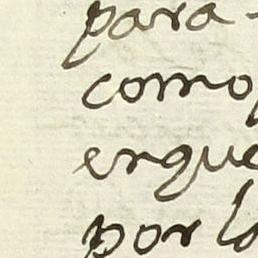 para
como
enque
por la